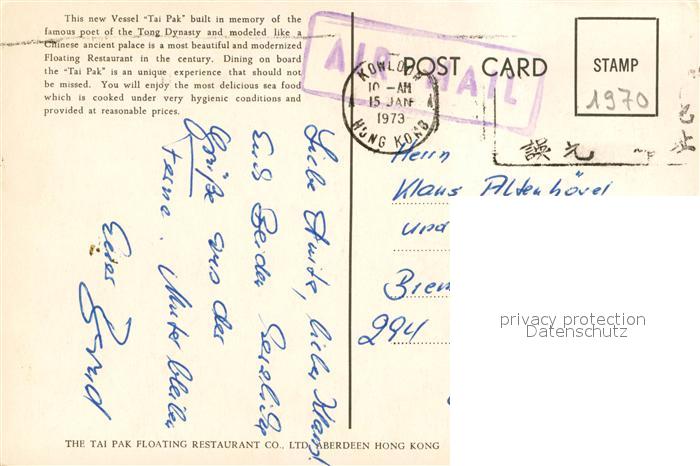 This new Vessel "Tai Pak" built in memory of the
famous poet of the Tong Dynasty and modeled like a
Chinese ancient palace is a most beautiful and modernized
Floating Restaurant in the century. Dining on board
the "Tai Pak" is an unique experience that should not
be missed. You will enjoy the most delicious sea food
which is cooked under very hygienic conditions and
provided at reasonable prices.
AIR MAIL
POST CARD
STAMP
1970
KOWLOON
10 - AM
15 JAN
1973
HONG KONG
Liebe Anita, lieber Klaus!
Euch Beiden herzliche
Grüße aus der
Ferne.
Euer
Herrn
Klaus Altenhövel
und
294
privacy protection
Datenschutz
THE TAI PAK FLOATING RESTAURANT CO., LTD. ABERDEEN HONG KONG